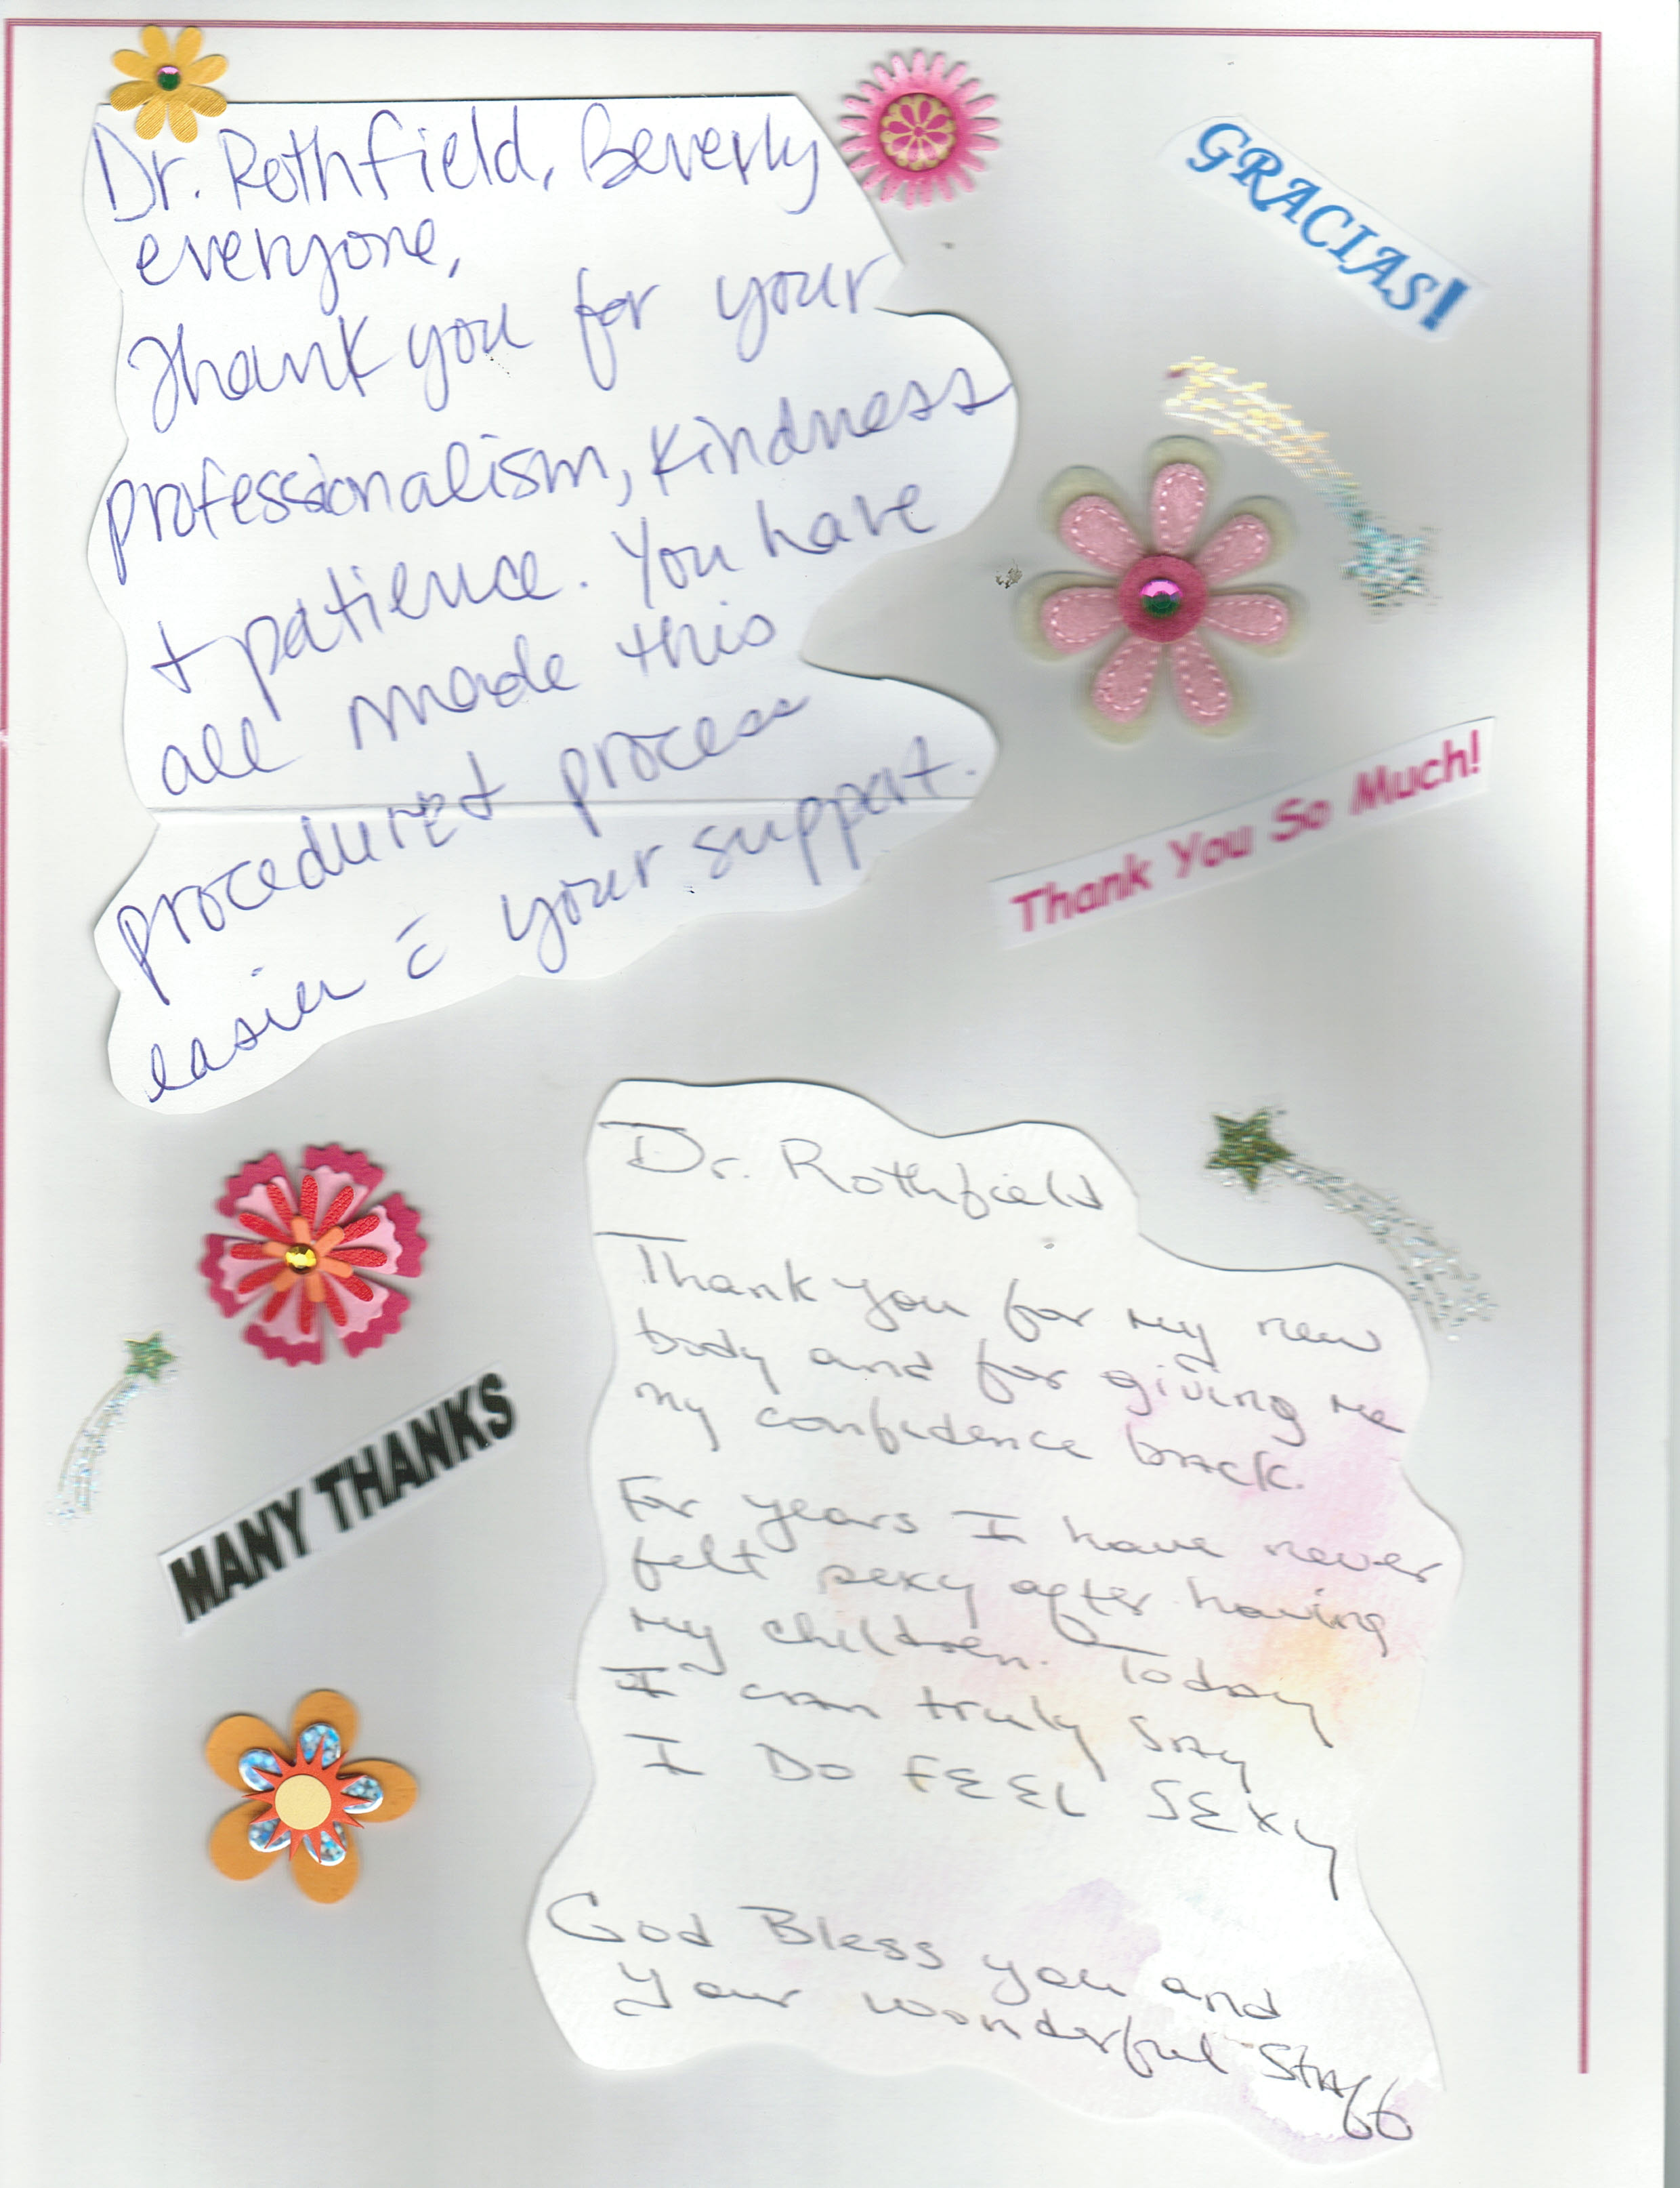 Dr. Rothfield, Beverly
everyone,
Thank you for your
professionalism, kindness
+ patience. You have
all made this
procedure + process
easier c̄ your support.
GRACIAS!
Thank You So Much!
MANY THANKS
Dr. Rothfield
Thank you for my new
body and for giving me
my confidence back.
For years I have never
felt sexy after having
my children. Today
I can truly say
I DO FEEL SEXY
God Bless you and
your wonderful Staff